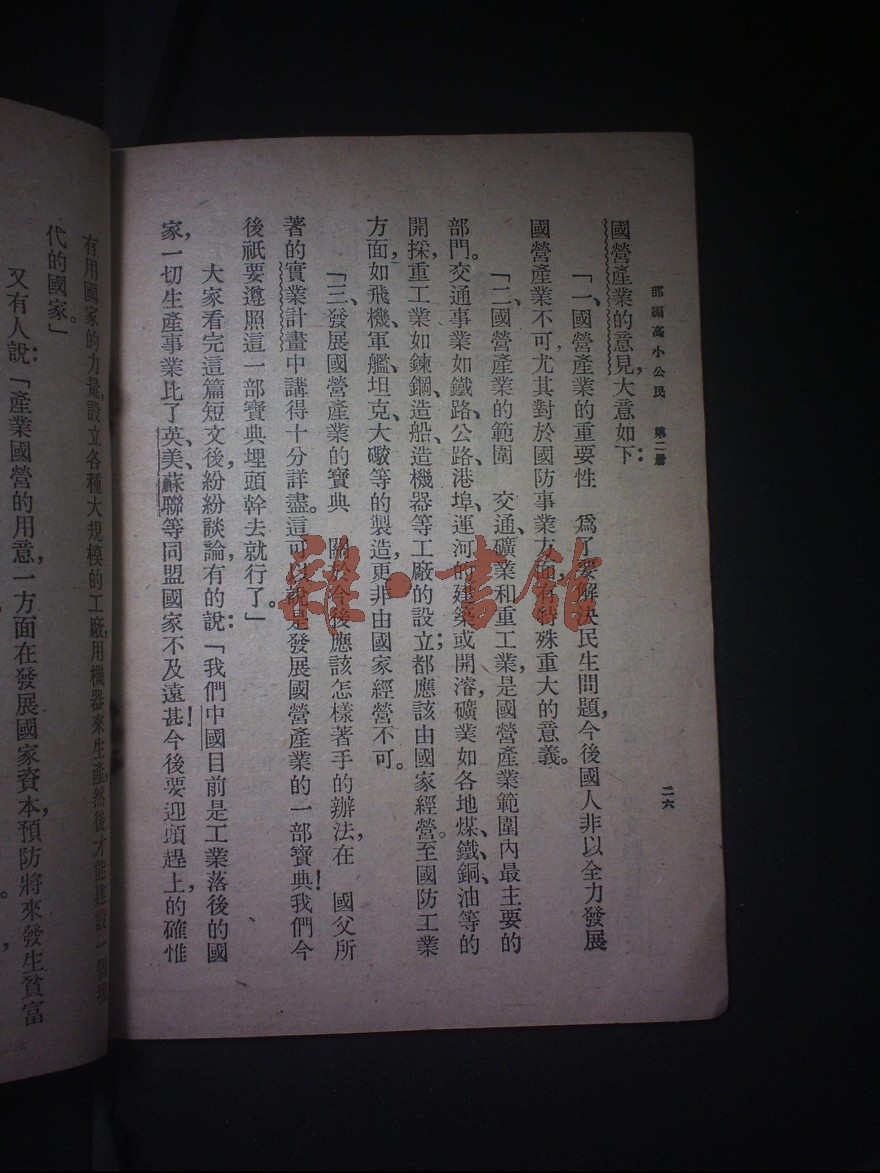 部編高小公民　第二册
二六
國營產業的意見，大意如下：
「一、國營產業的重要性　爲了要解決民生問題，今後國人非以全力發展
國營產業不可，尤其對於國防事業方面，有特殊重大的意義。
「二、國營產業的範圍　交通、礦業和重工業，是國營產業範圍內最主要的
部門。交通事業如鐵路、公路、港埠、運河的建築或開濬，礦業如各地煤、鐵、銅、油等的
開採，重工業如鍊鋼、造船、造機器等工廠的設立；都應該由國家經營。至國防工業
方面，如飛機、軍艦、坦克、大礮等的製造，更非由國家經營不可。
「三、發展國營產業的寶典　關於今後應該怎樣著手的辦法，在　國父所
著的實業計畫中講得十分詳盡。這可以說是發展國營產業的一部寶典！我們今
後祇要遵照這一部寶典埋頭幹去就行了。」
大家看完這篇短文後，紛紛談論，有的說：「我們中國目前是工業落後的國
家，一切生產事業比了英、美、蘇聯等同盟國家不及遠甚！今後要迎頭趕上，的確惟
有用國家的力量，設立各種大規模的工廠，用機器來生產，然後才能建設一個現
代的國家」。
又有人說：「產業國營的用意，一方面在發展國家資本，預防將來發生貧富
雜·書館